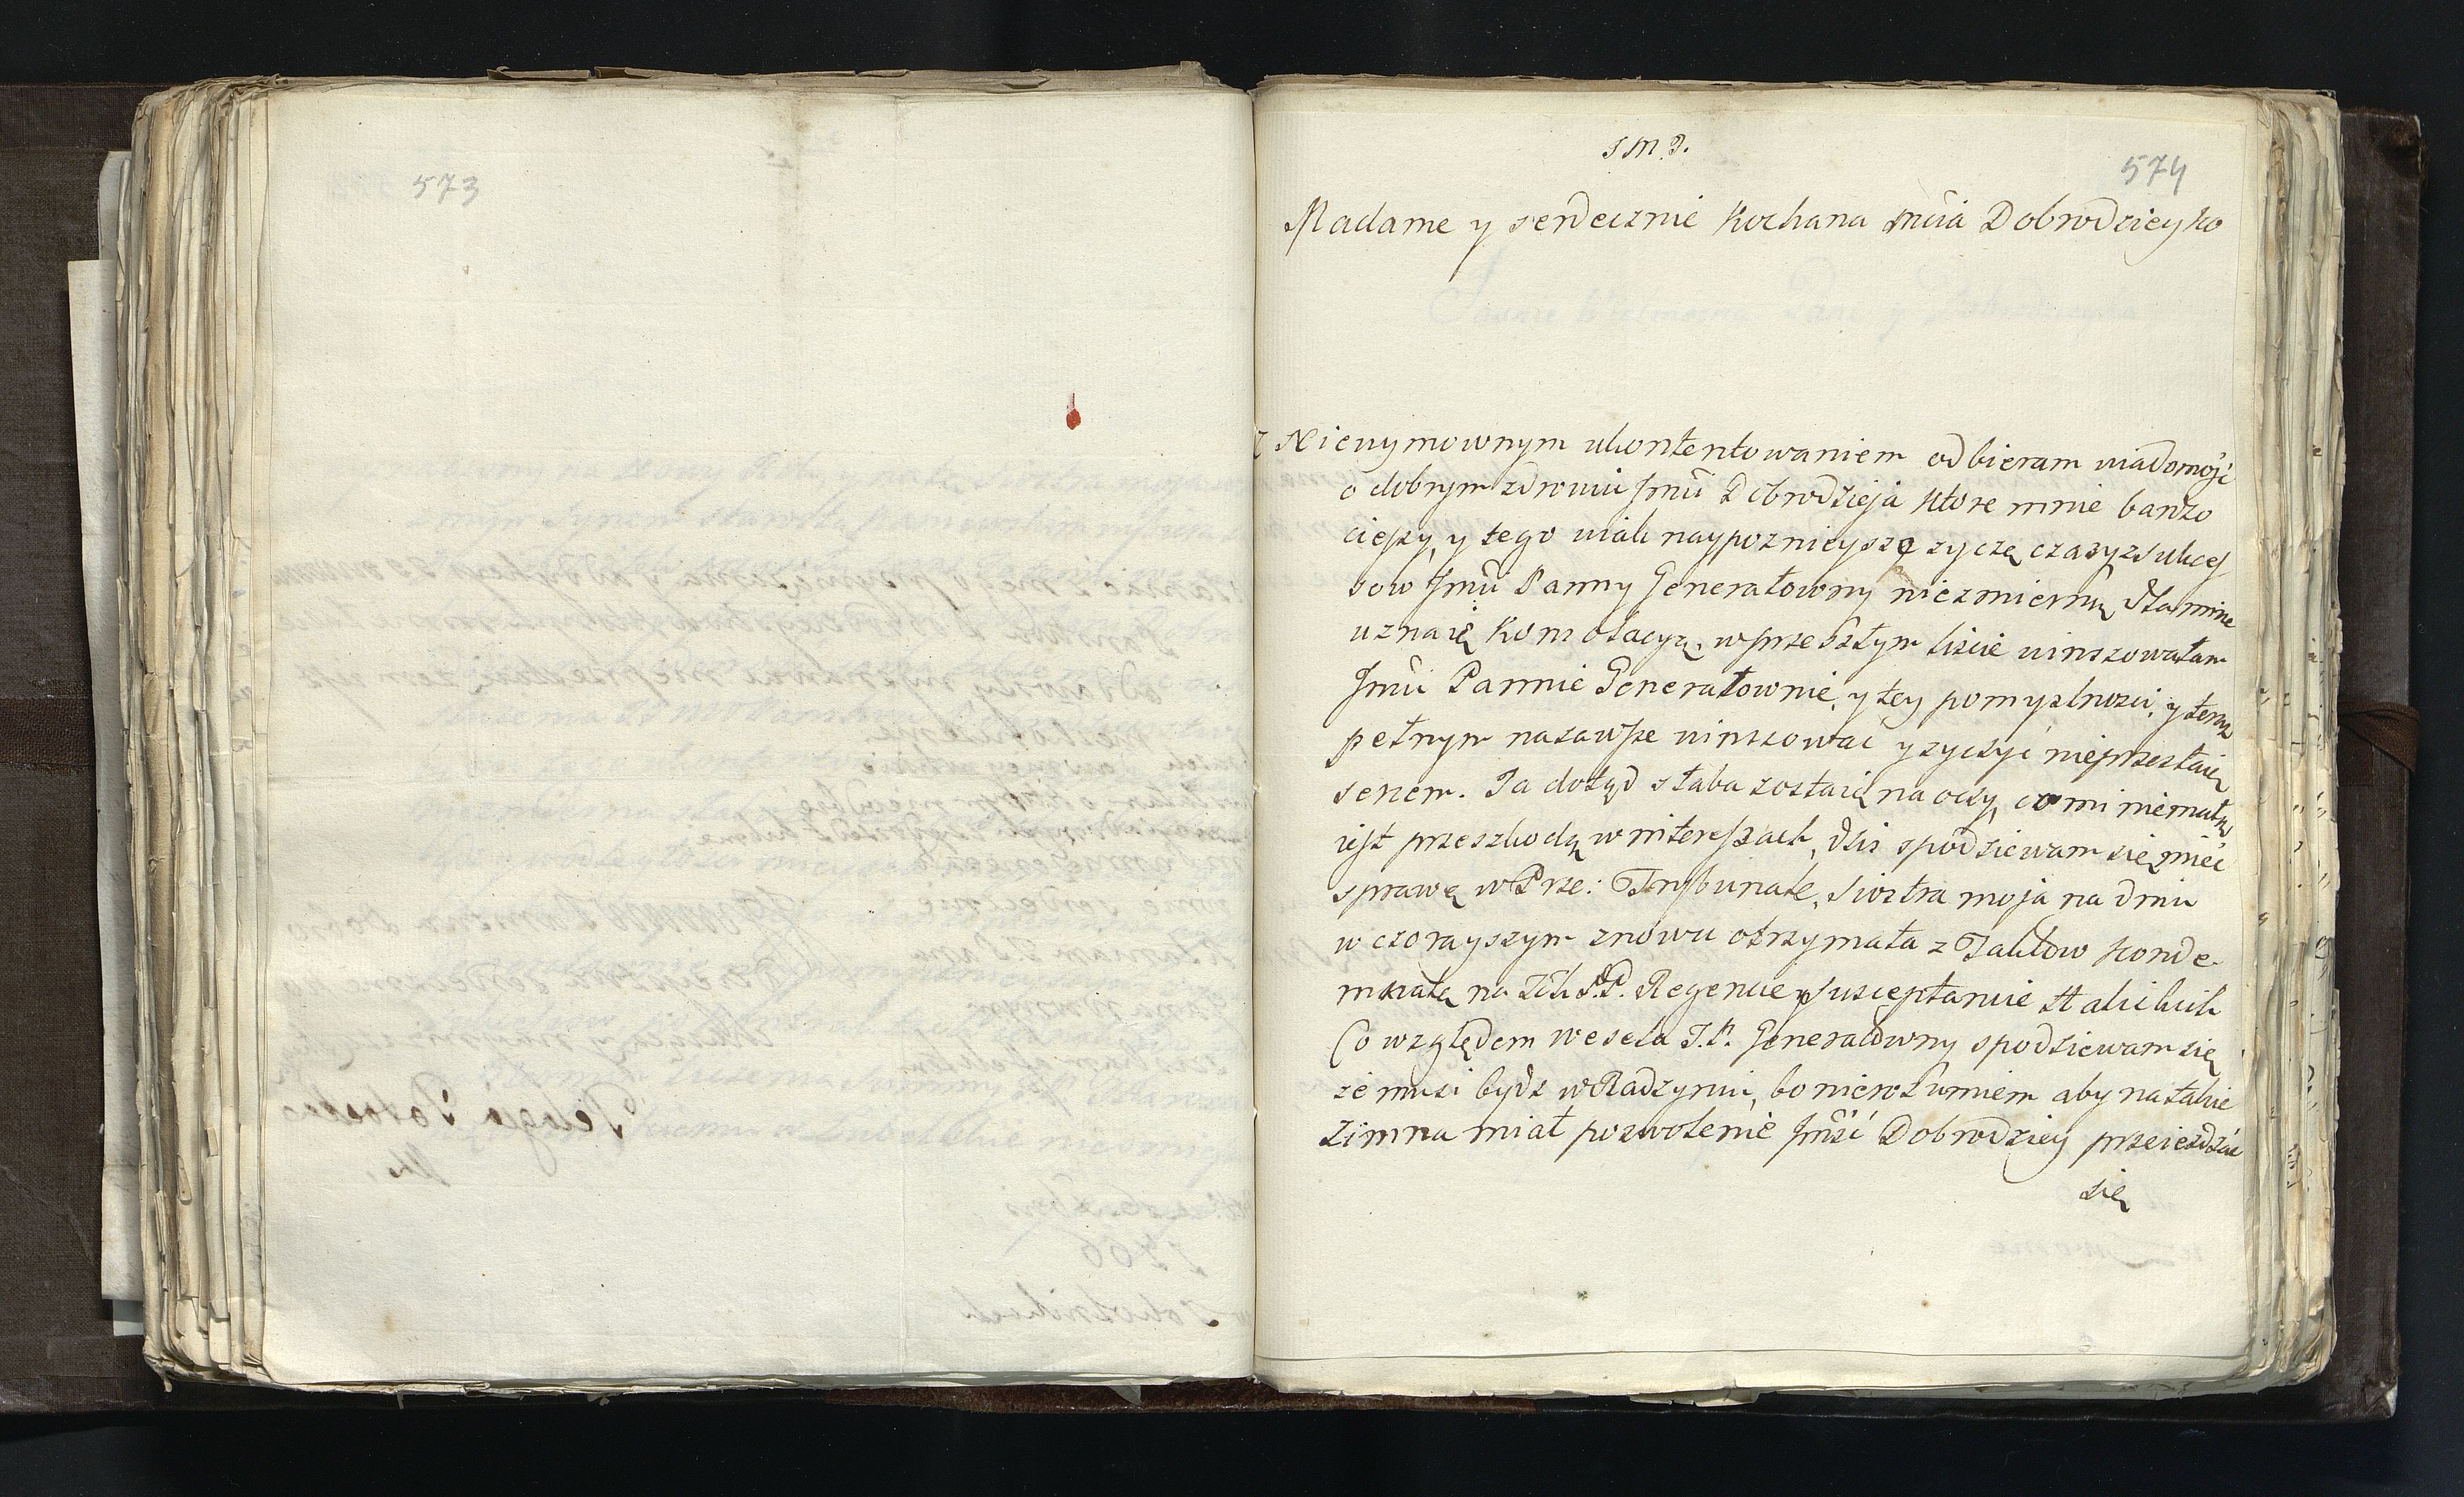 573
J M J.
574
Madame y serdecznie Kochana mcia Dobrodzieyko
Z Niewymownym ukontentowaniem odbieram wiadomość
o dobrym zdrowiu Jmci Dobrodzieja ktore mnie barzo
cieszy, y tego wiek naypoznieyszę życzę czasy z sukces
sow Jmci Panny Generałowny niezmierną dla mnie
uznaię Konsolacyą, w przeszłym liscie winszowałam
Jmci Pannie Generałownie, y tey pomyslnosci, y teraz
pełnym nazawsze winszować y życzyć nieprzestaię
sercem. Ja dotąd słaba zostaię na oczy, co mi niemałą
iest przeszkodą w interessach, dzis spodziewam się mieć
sprawę w Prze: Trybunale, Siostra moja na dniu
wczorayszym znowu otrzymała z Taktow konde
mnatę na Ich P.P. Regencie y Susceptancie Halickich
Co względem wesela J.P. Generałowny spodziewam się
że musi bydz w Radzyniu, bo nierozumiem aby na takie
zimna miał pozwolenie Jmść Dobrodziey przeieżdżać
się